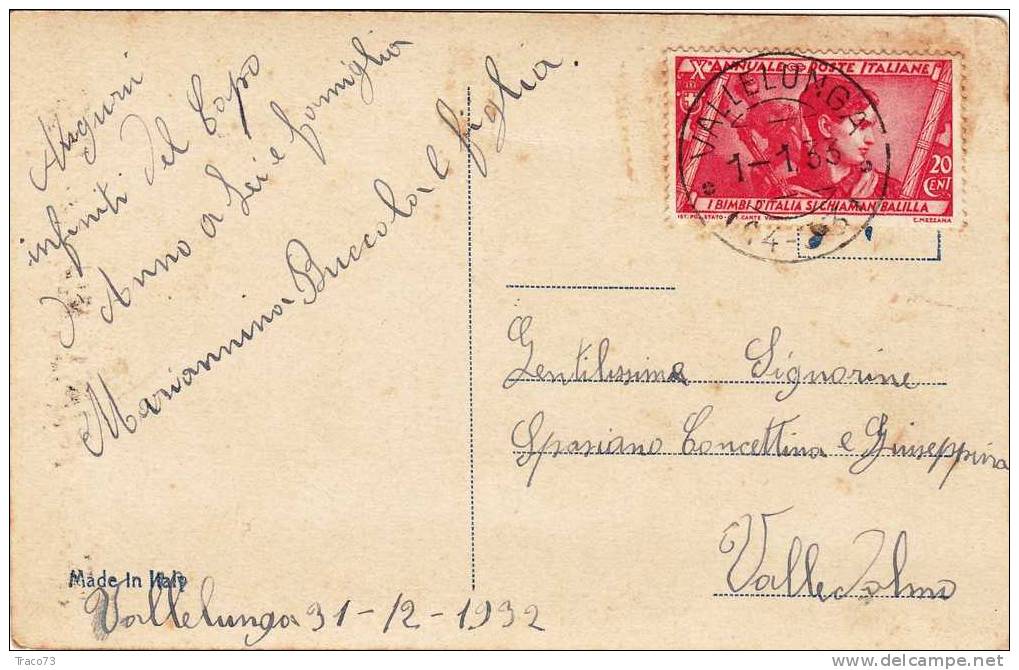 Auguri
infiniti del Capo
d Anno a Lei e famiglia
Mariannina Buccola e figlia
Made In Italy
Vallelunga 31-12-1932
Xº ANNUALE POSTE ITALIANE
20
CENT
I BIMBI D'ITALIA SI CHIAMAN BALILLA
IST. POL. STATO
CARTE
C. MEZZANA
VALLELUNGA
1-1.33
Gentilissime Signorine
Spasiano Concettina e Giuseppina
Valledolmo
Traco73
www.delcampe.net